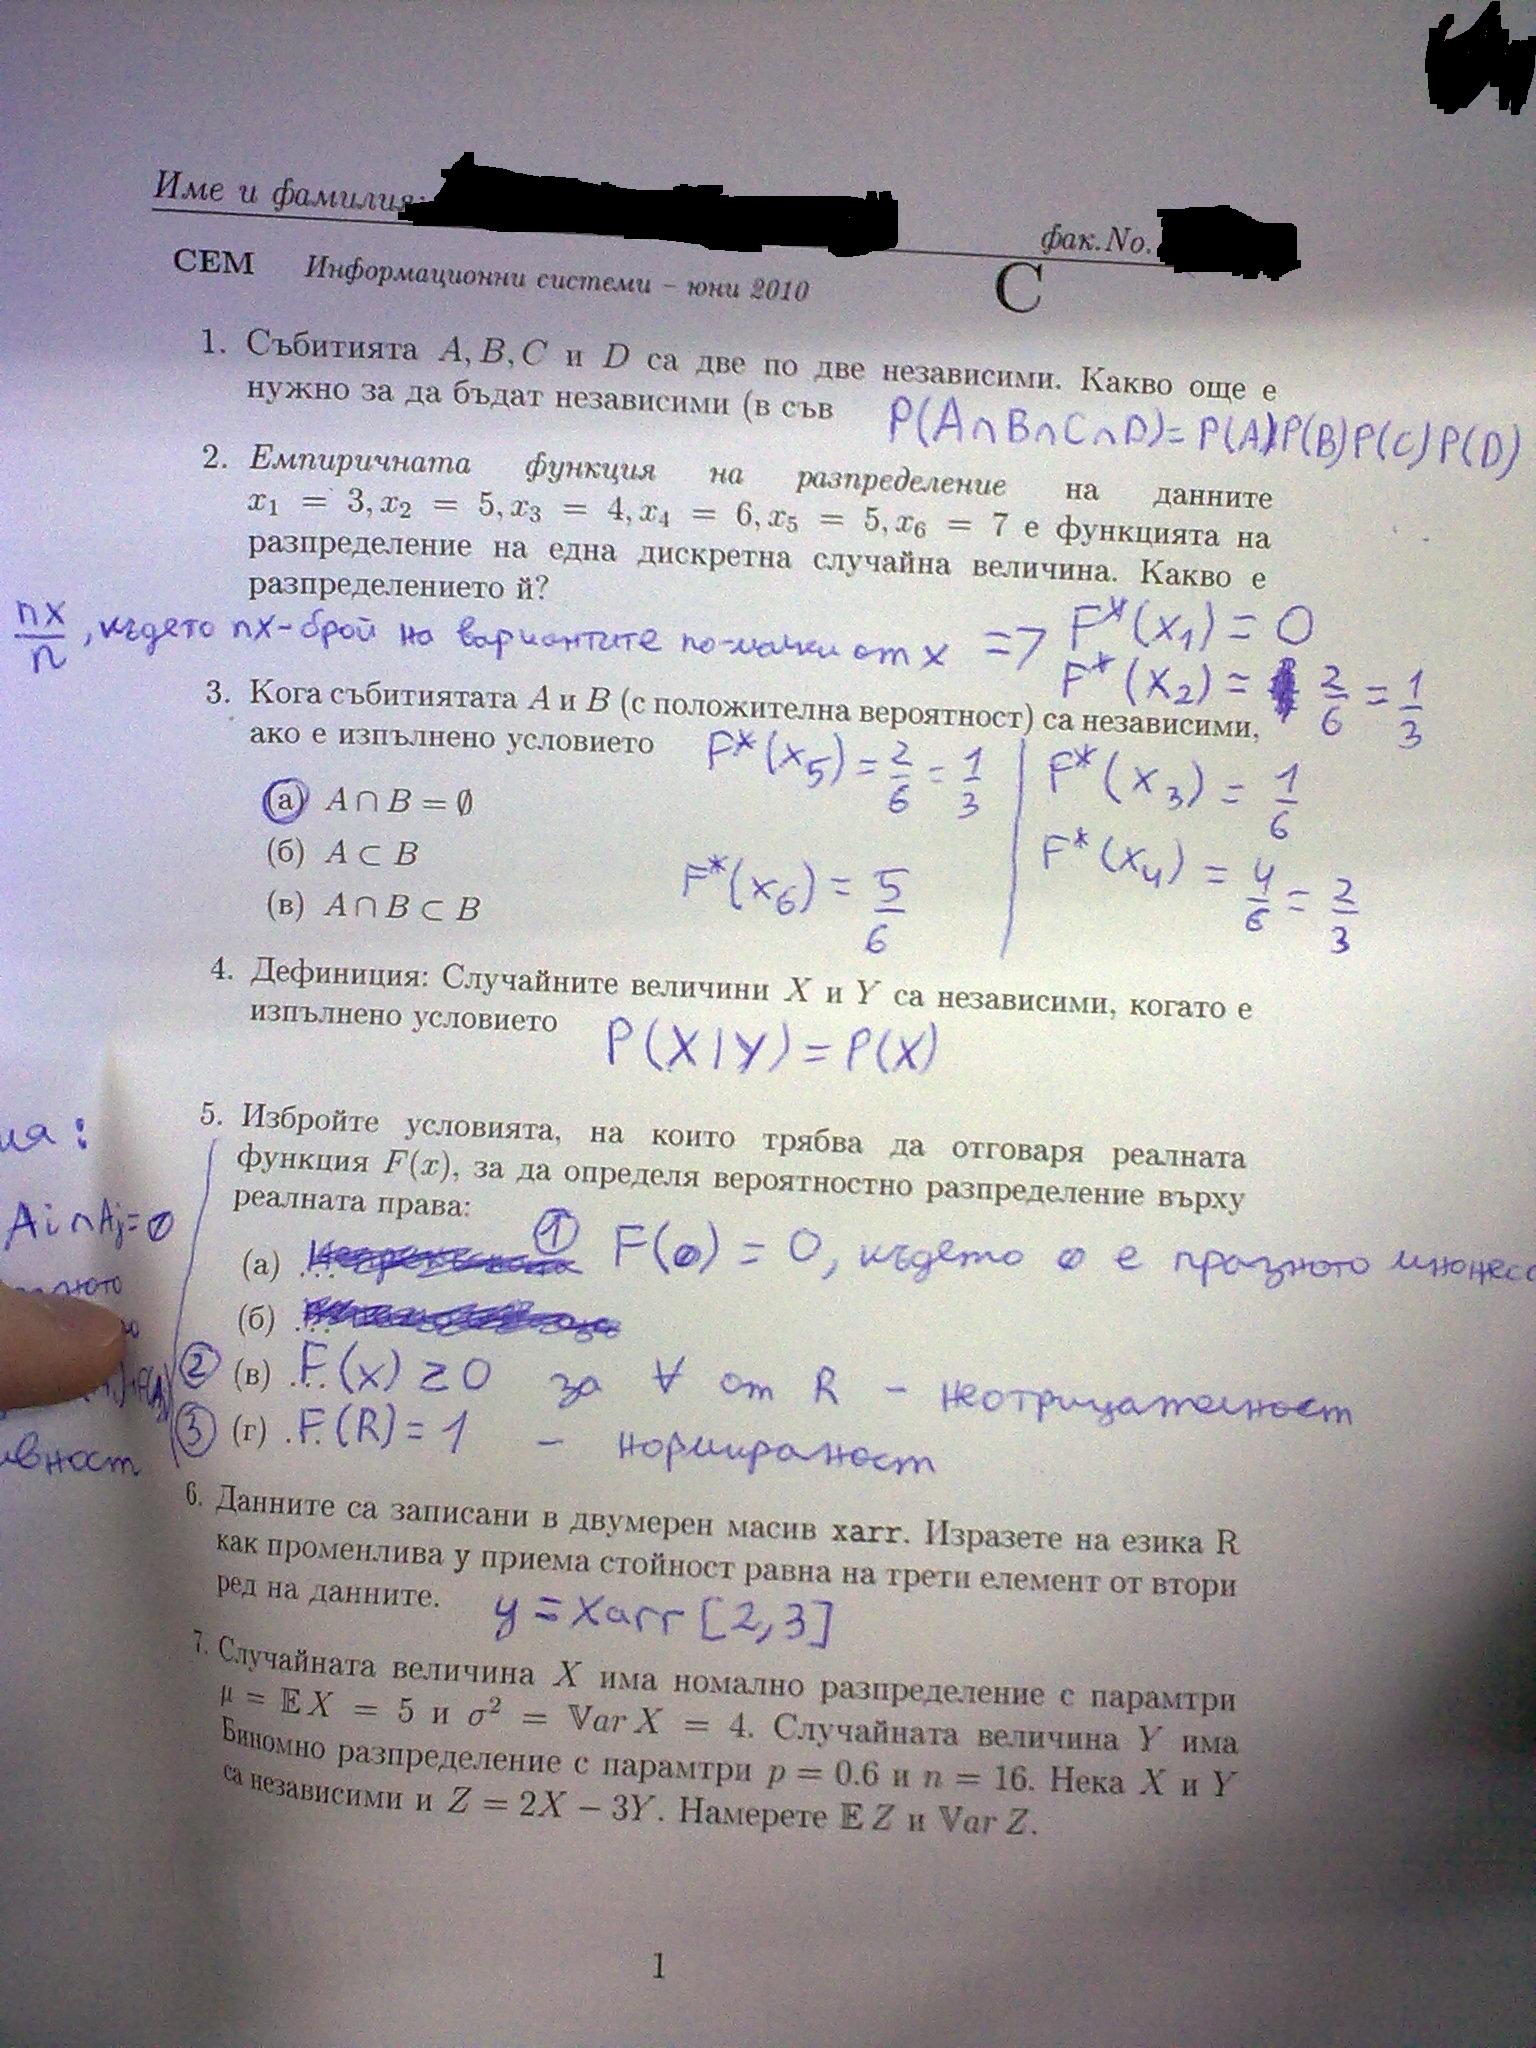 Име и фамилия:
фак.No.
СЕМ Информационни системи – юни 2010 C
1. Събитията A, B, C и D са две по две независими. Какво още е
нужно за да бъдат независими (в съв P(A∩B∩C∩D)= P(A)P(B)P(C)P(D)
2. Емпиричната функция на разпределение на данните
x₁ = 3, x₂ = 5, x₃ = 4, x₄ = 6, x₅ = 5, x₆ = 7 е функцията на
разпределение на една дискретна случайна величина. Какво е
разпределението й?
nx/n, където nx-брой на вариантите по-малки от x => F*(x₁) = 0
F*(x₂) = 2/6 = 1/3
3. Кога събитиятата A и B (с положителна вероятност) са независими,
ако е изпълнено условието F*(x₅) = 2/6 = 1/3 F*(x₃) = 1/6
(а) A ∩ B = ∅
F*(x₄) = 4/6 = 2/3
(б) A ⊂ B
F*(x₆) = 5/6
(в) A ∩ B ⊂ B
4. Дефиниция: Случайните величини X и Y са независими, когато е
изпълнено условието P(X|Y) = P(X)
5. Избройте условията, на които трябва да отговаря реалната
функция F(x), за да определя вероятностно разпределение върху
реалната права:
Ai∩Aj=∅
(а) ... ① F(∅) = 0, където ∅ е празното
(б) ...
② (в) ... F(x) ≥ 0 за ∀ от R – неотрицателност
③ (г) ... F(R) = 1 – нормираност
6. Данните са записани в двумерен масив xarr. Изразете на езика R
как променлива y приема стойност равна на трети елемент от втори
ред на данните. y = xarr [2,3]
7. Случайната величина X има номално разпределение с парамтри
μ = 𝔼 X = 5 и σ² = 𝕍ar X = 4. Случайната величина Y има
Биномно разпределение с парамтри p = 0.6 и n = 16. Нека X и Y
са независими и Z = 2X − 3Y. Намерете 𝔼 Z и 𝕍ar Z.
1